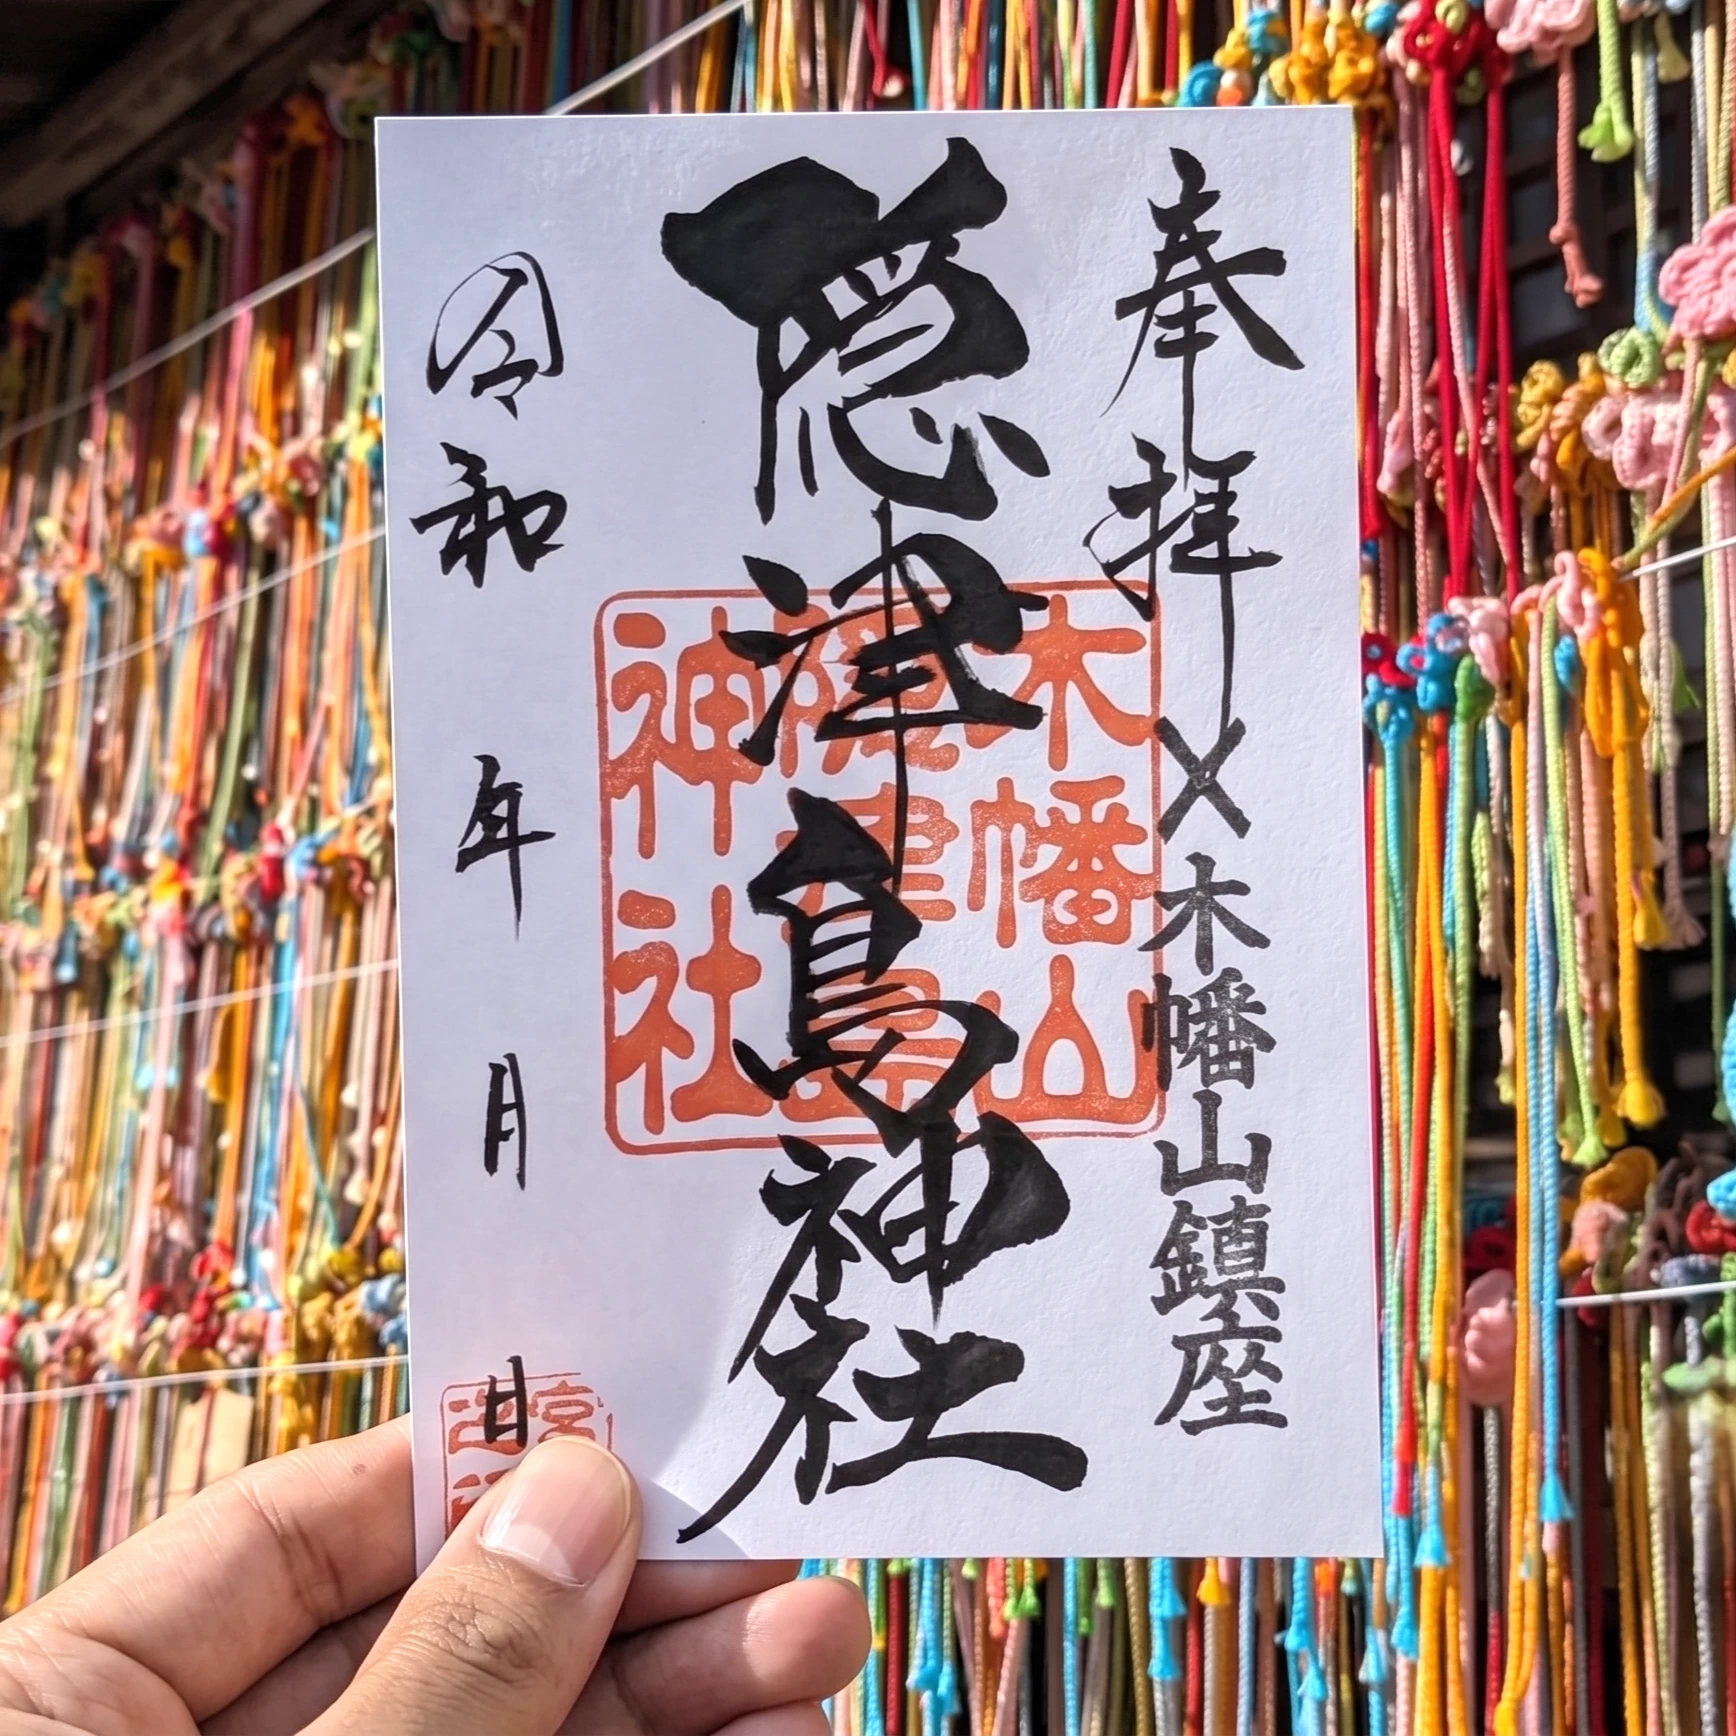 奉拝
木幡山鎮座
隠津島神社
木幡山
隠津島
神社
令和 年 月 日
宮